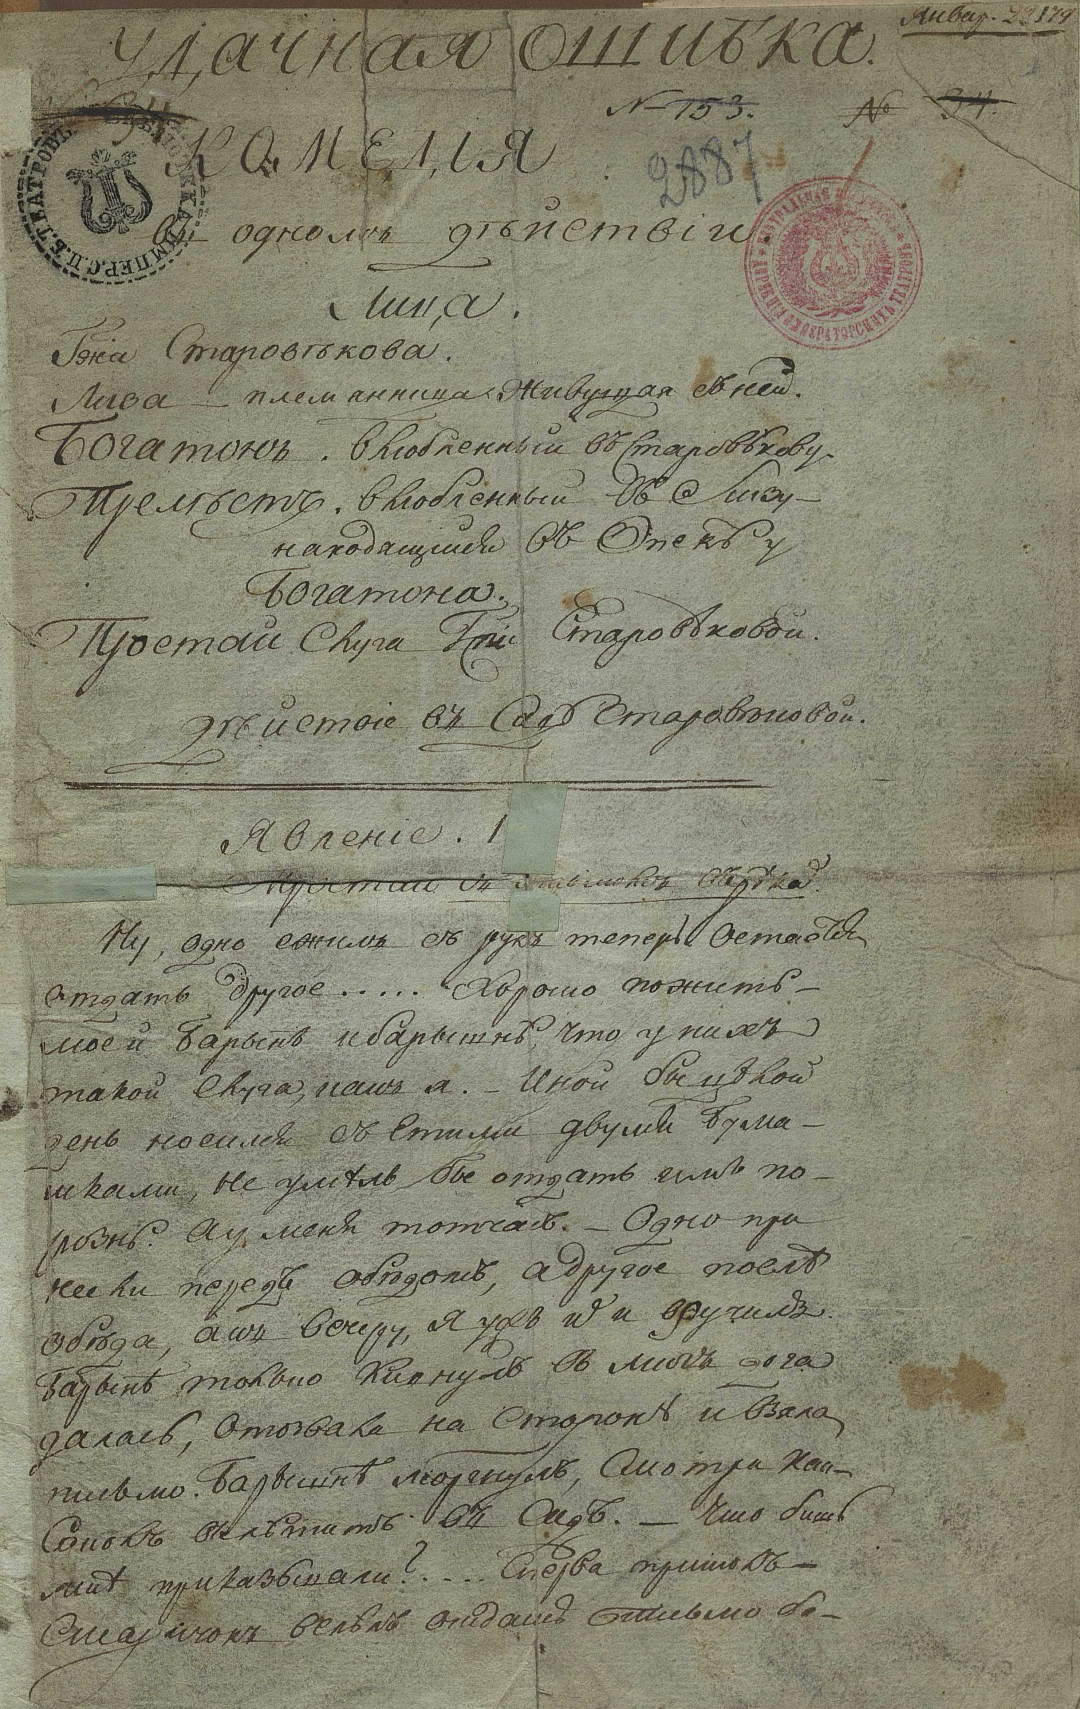 Январ. 29
Удачная ошибка.
№ 153. № 34.
2887
Комедія
въ одномъ дѣйствіи
Лица.
Гжа Старовѣкова.
Лиза – племянница живущая съ ней.
Богатонъ. влюбленный въ Старовѣкову.
Прелѣстъ. влюбленный въ Лизу –
находящійся въ Опекѣ у
Богатона.
Простай слуга Гжи Старовѣковой.
дѣйствіе въ Саду Старовѣковой.
Явленіе. 1
Простай съ письмомъ
Ну, одно сжилъ съ рукъ теперь Остаётся
отдать другое ..... Хорошо пожить –
моей Барынѣ и барышнѣ, что у нихъ
такой слуга, какъ я. – Иной бы цѣлой
день носился съ Етими двумя Бума –
шками, не умѣлъ бы отдать имъ по –
рознь. А у меня тотчасъ. – Одно при
неси передъ обѣдомъ, а другое послѣ
обѣда, а къ вечеру, я ужъ и вручилъ.
Барынѣ только Кивнулъ въ мигъ дога
далась, Отозвала на Сторонѣ и взяла
письмо. Барышнѣ моргнулъ, Смотри как
въ Садъ. – Что бишь
мнѣ приказывали? .... Сперва пришолъ –
Старичокъ велѣлъ отдать письмо ба –